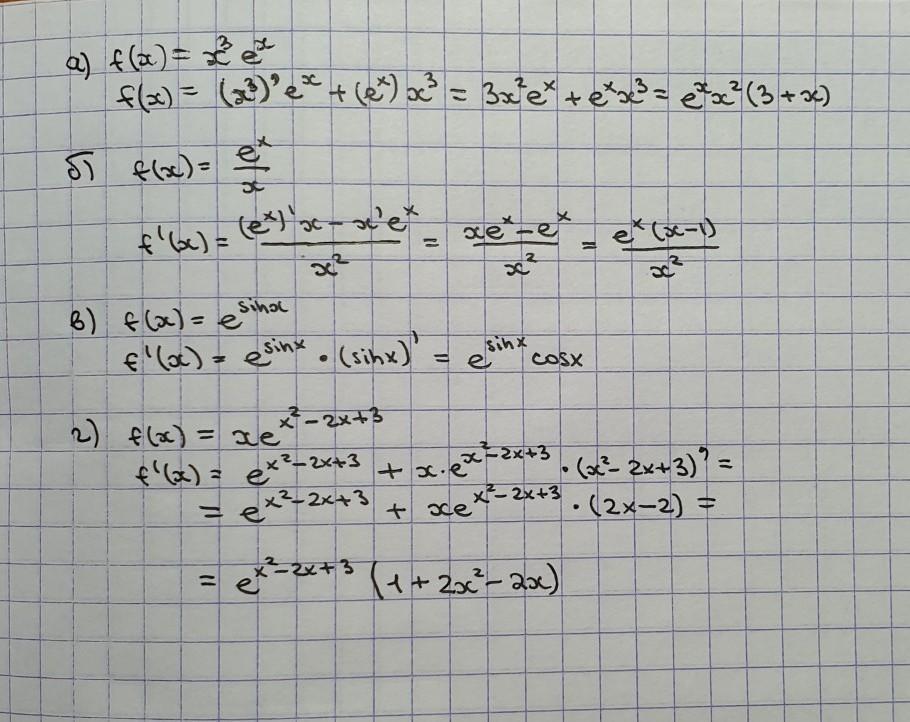 а) f(x) = x³ eˣ
f(x) = (x³)' eˣ + (eˣ) x³ = 3x²eˣ + eˣx³ = eˣx²(3 + x)
б) f(x) = eˣ/x
f'(x) = ((eˣ)'x − x'eˣ)/x² = (xeˣ − eˣ)/x² = eˣ(x−1)/x²
в) f(x) = e^(sinx)
f'(x) = e^(sinx) • (sinx)' = e^(sinx) cosx
г) f(x) = xe^(x²−2x+3)
f'(x) = e^(x²−2x+3) + x·e^(x²−2x+3) ·(x²−2x+3)' =
= e^(x²−2x+3) + xe^(x²−2x+3) ·(2x−2) =
= e^(x²−2x+3) (1 + 2x² − 2x)